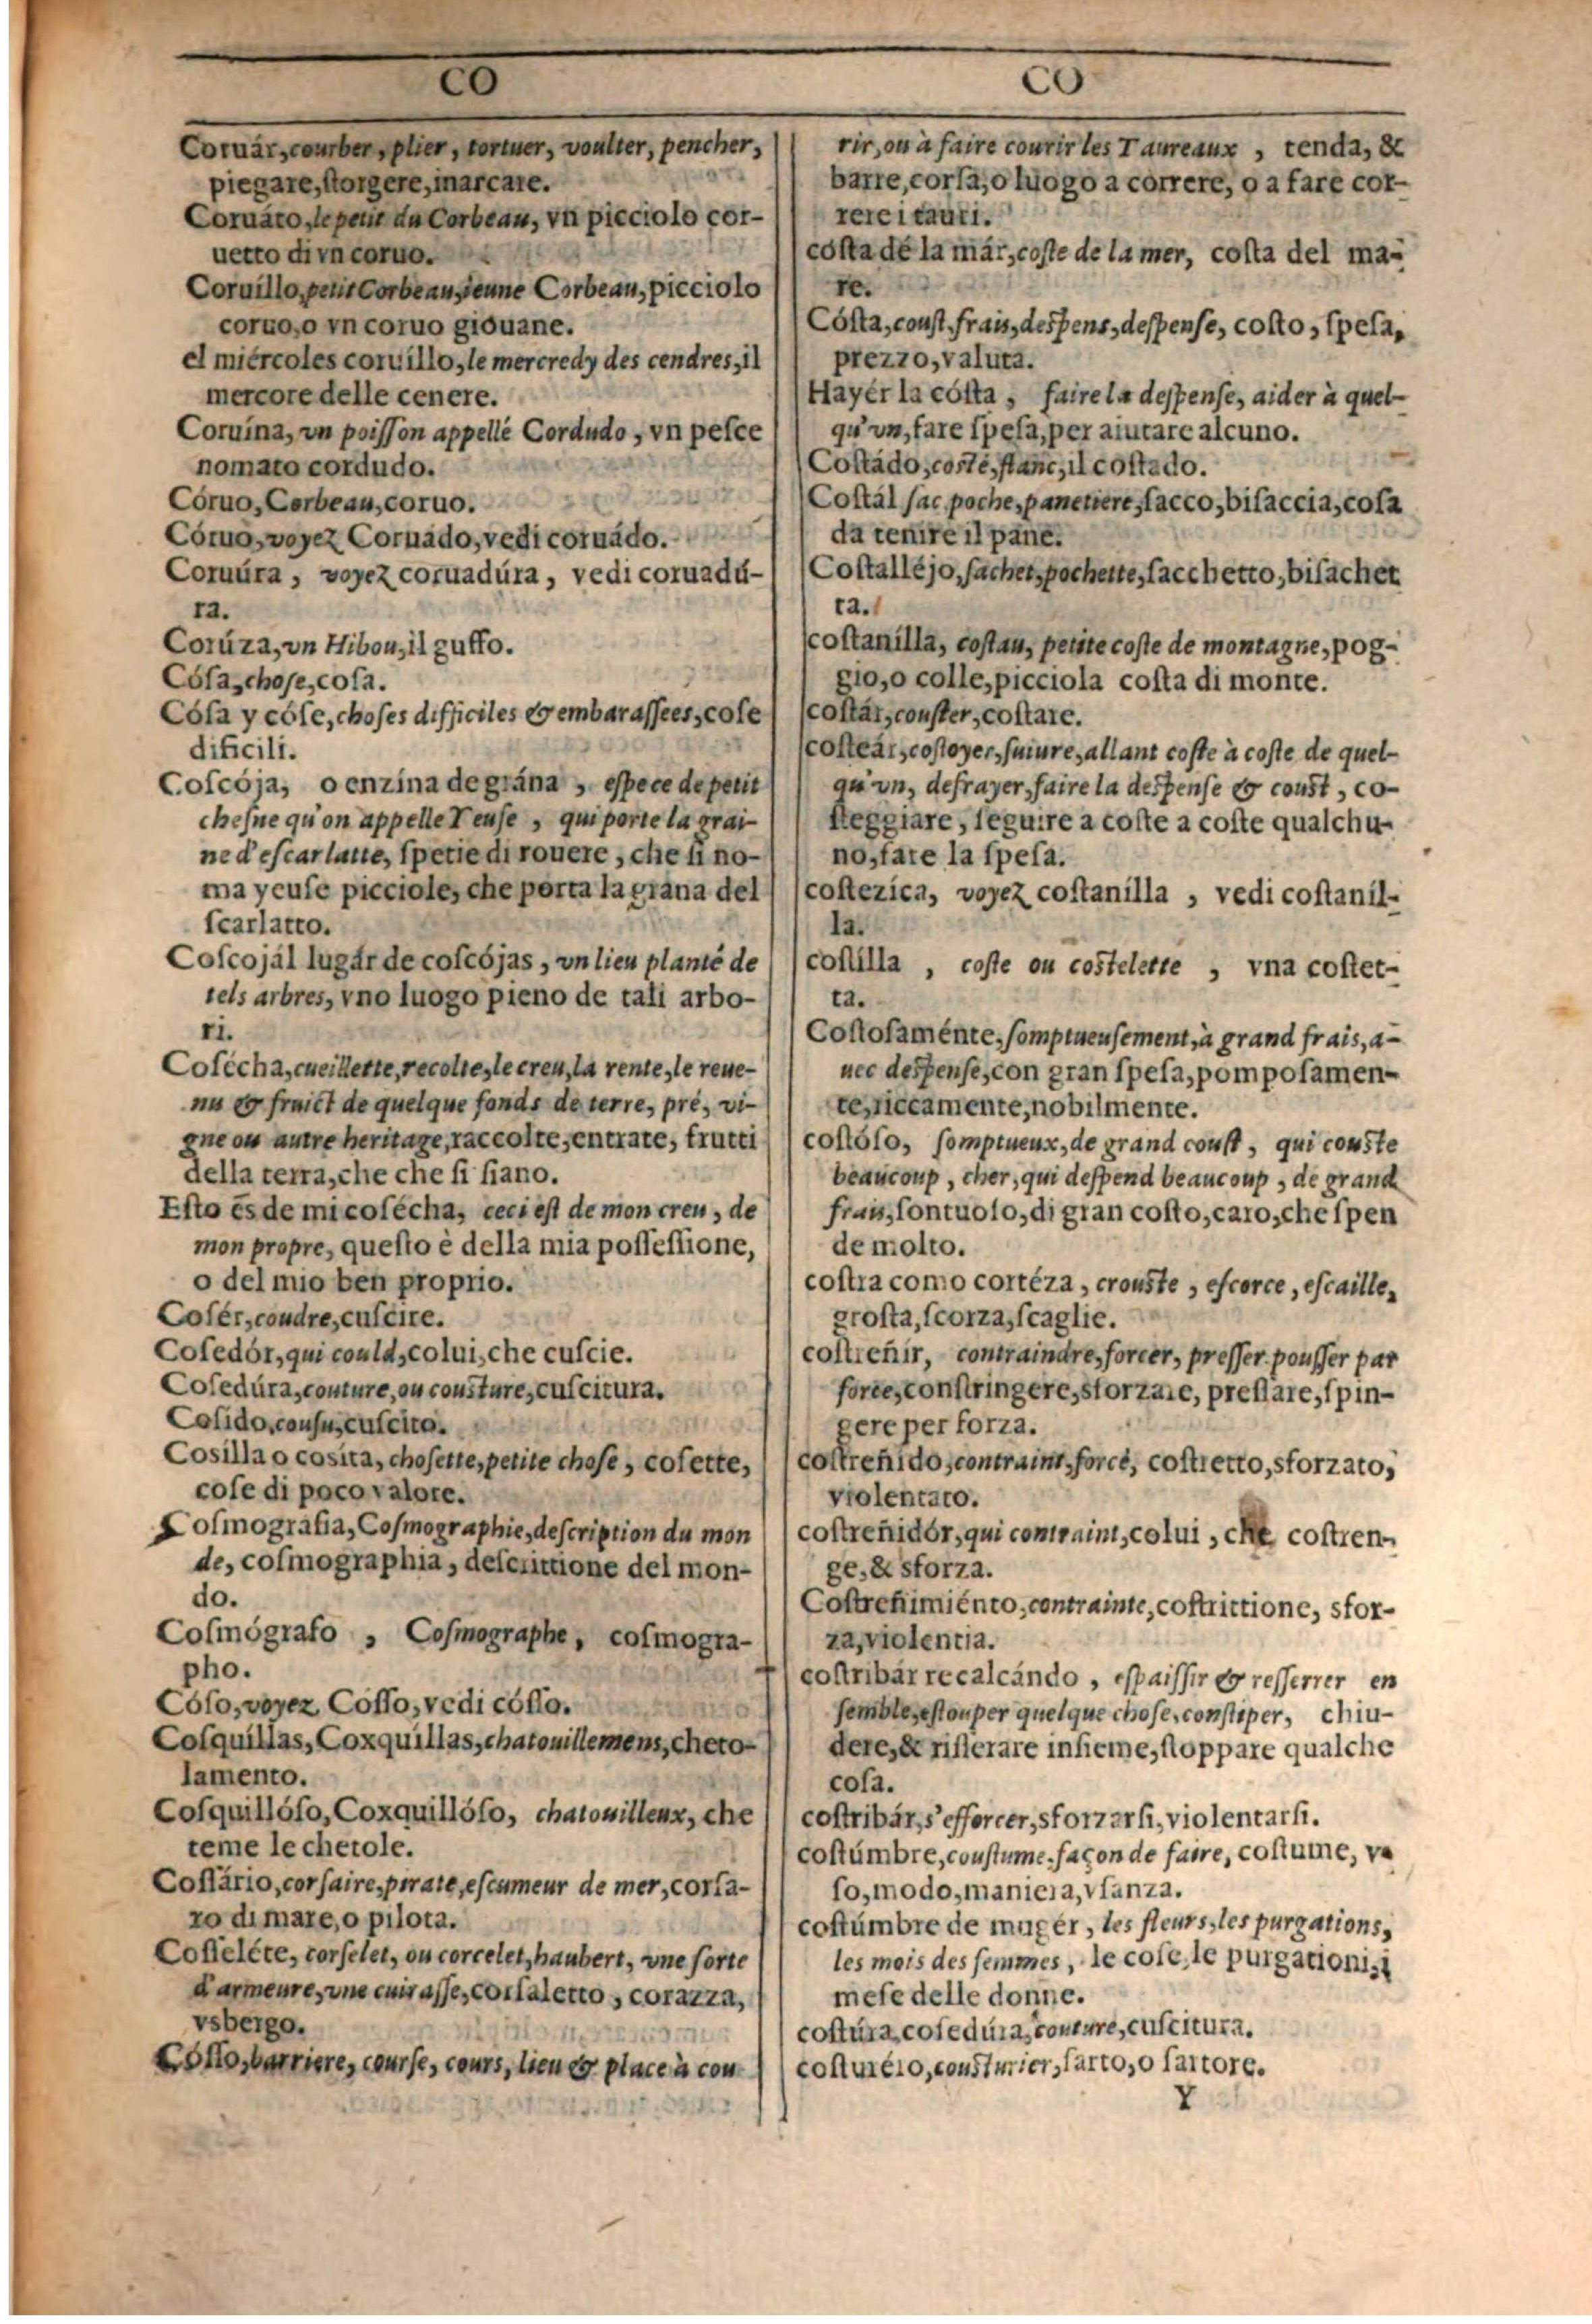 CO
Coruár, courber, plier, tortuer, voulter, pencher,
piegare, ſtorgere, inarcare.
Coruáto, le petit du Corbeau, vn picciolo cor-
uetto di vn coruo.
Coruíllo, petit Corbeau, ieune Corbeau, picciolo
coruo, o vn coruo giouane.
el miércoles coruíllo, le mercredy des cendres, il
mercore delle cenere.
Coruína, vn poiſſon appellé Cordudo, vn peſce
nomato cordudo.
Córuo, Corbeau, coruo.
Córuo, voyez Coruádo, vedi coruádo.
Coruúra, voyez coruadúra, vedi coruadú-
ra.
Corúza, vn Hibou, il guffo.
Cóſa, choſe, coſa.
Cóſa y cóſe, choſes difficiles & embaraſſees, coſe
dificili.
Coſcója, o enzína de grána, eſpece de petit
cheſne qu'on appelle Yeuſe, qui porte la grai-
ne d'eſcarlatte, ſpetie di rouere, che ſi no-
ma yeuſe picciole, che porta la grana del
ſcarlatto.
Coſcojál lugár de coſcójas, vn lieu planté de
tels arbres, vno luogo pieno de tali arbo-
ri.
Coſécha, cueillette, recolte, le creu, la rente, le reue-
nu & fruict de quelque fonds de terre, pré, vi-
gne ou autre heritage, raccolte, entrate, frutti
della terra, che che ſi ſiano.
Eſto és de mi coſécha, ceci eſt de mon creu, de
mon propre, queſto è della mia poſſeſſione,
o del mio ben proprio.
Coſér, coudre, cuſcire.
Coſedór, qui could, colui, che cuſcie.
Coſedúra, couture, ou couſture, cuſcitura.
Coſido, couſu, cuſcito.
Cosilla o cosíta, choſette, petite choſe, coſette,
coſe di poco valore.
Coſmografia, Coſmographie, deſcription du mon
de, coſmographia, deſcrittione del mon-
do.
Coſmógrafo, Coſmographe, coſmogra-
pho.
Cóſo, voyez Coſſo, vedi cóſſo.
Coſquíllas, Coxquíllas, chatouillemens, cheto-
lamento.
Coſquillóſo, Coxquillóſo, chatouilleux, che
teme le chetole.
Coſſário, corſaire, pirate, eſcumeur de mer, corſa-
ro di mare, o pilota.
Coſſeléte, corſelet, ou corcelet, haubert, vne ſorte
d'armeure, vne cuiraſſe, corſaletto, corazza,
vsbergo.
Cóſſo, barriere, courſe, cours, lieu & place à cou
CO
rir, ou à faire courir les Taureaux, tenda, &
barre, corſa, o luogo a correre, o a fare cor-
rere i tauri.
cóſta dé la már, coſte de la mer, coſta del ma-
re.
Cóſta, couſt, frais, deſpens, deſpenſe, coſto, ſpeſa,
prezzo, valuta.
Hayér la cóſta, faire la deſpenſe, aider à quel-
qu'vn, fare ſpeſa, per aiutare alcuno.
Coſtádo, coſté, flanc, il coſtado.
Coſtál ſac poche, panetiere, ſacco, biſaccia, coſa
da tenire il pane.
Coſtalléjo, ſachet, pochette, ſacchetto, biſachet
ta.
coſtanílla, coſtau, petite coſte de montagne, pog-
gio, o colle, picciola coſta di monte.
coſtár, couſter, coſtare.
coſteár, coſtoyer, ſuiure, allant coſte à coſte de quel-
qu'vn, defrayer, faire la deſpenſe & couſt, co-
ſteggiare, ſeguire a coſte a coſte qualchu-
no, fare la ſpeſa.
coſtezíca, voyez coſtanílla, vedi coſtaníl-
la.
coſtílla, coſte ou coſtelette, vna coſtet-
ta.
Coſtoſaménte, ſomptueuſement, à grand frais, a-
uec deſpenſe, con gran ſpeſa, pompoſamen-
te, riccamente, nobilmente.
coſtóſo, ſomptueux, de grand couſt, qui couſte
beaucoup, cher, qui deſpend beaucoup, de grand
frais, ſontuoſo, di gran coſto, caro, che ſpen
de molto.
coſtra como cortéza, crouſte, eſcorce, eſcaille,
groſta, ſcorza, ſcaglie.
coſtreñír, contraindre, forcer, preſſer pouſſer par
force, conſtringere, sforzare, preſſare, ſpin-
gere per forza.
coſtreñido, contraint, forcé, coſtretto, sforzato,
violentato.
coſtreñidór, qui contraint, colui, che coſtren-
ge, & sforza.
Coſtreñimiénto, contrainte, coſtrittione, sfor-
za, violentia.
coſtribár recalcándo, eſpaiſſir & reſſerrer en
ſemble, eſtouper quelque choſe, conſtiper, chiu-
dere, & riſſerare inſieme, ſtoppare qualche
coſa.
coſtribár, s'efforcer, sforzarſi, violentarſi.
coſtúmbre, couſtume, façon de faire, coſtume, v
ſo, modo, maniera, vſanza.
coſtúmbre de mugér, les fleurs, les purgations,
les mois des femmes, le coſe, le purgationi, i
meſe delle donne.
coſtúra, coſedúra, couture, cuſcitura.
coſturéro, couſturier, ſarto, o ſartore.
Y